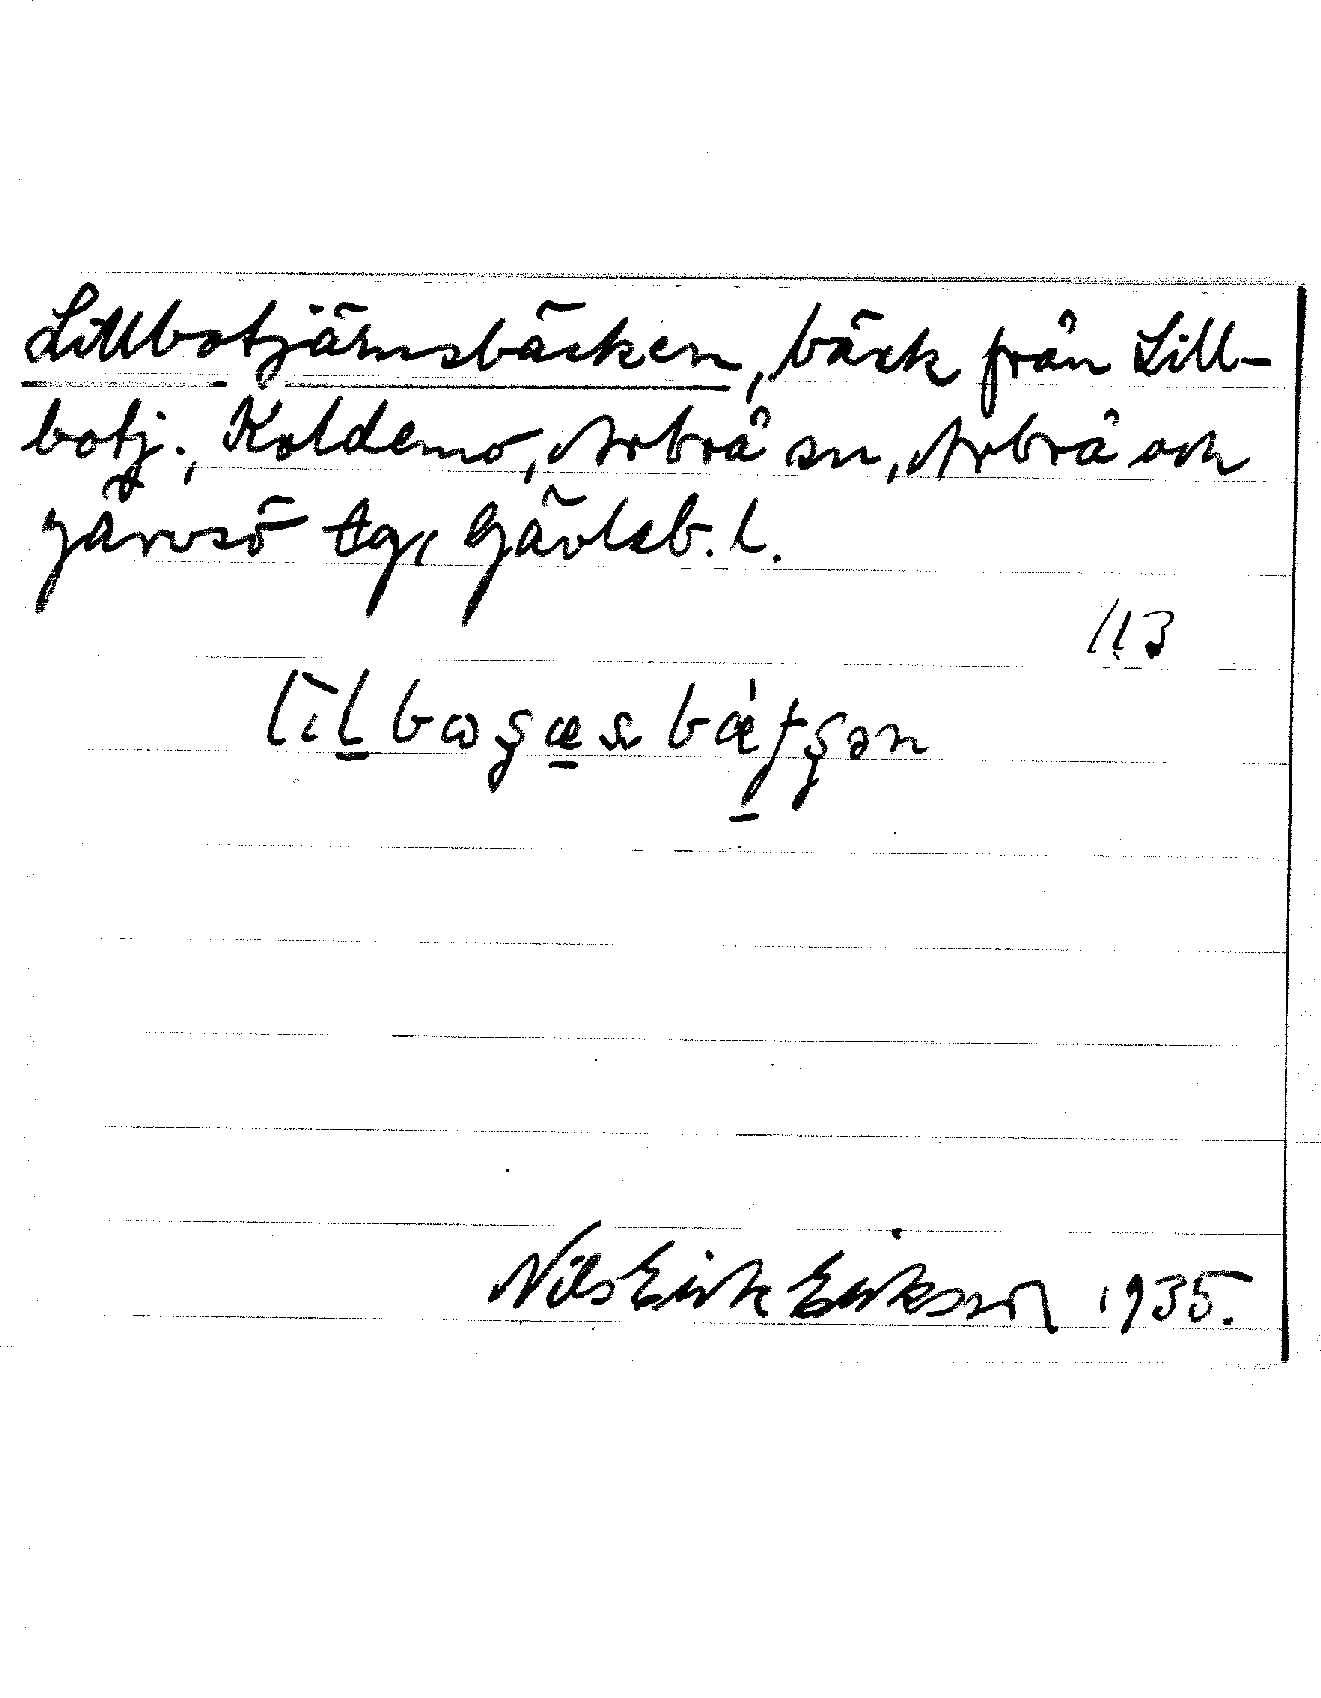 Lillbotjärnsbäcken, bäck från Lill-
botj., Koldemo, Arbrå sn, Arbrå och
Järvsö tg, Gävleb. l.
113
Nils Erik Eriksson 1935.